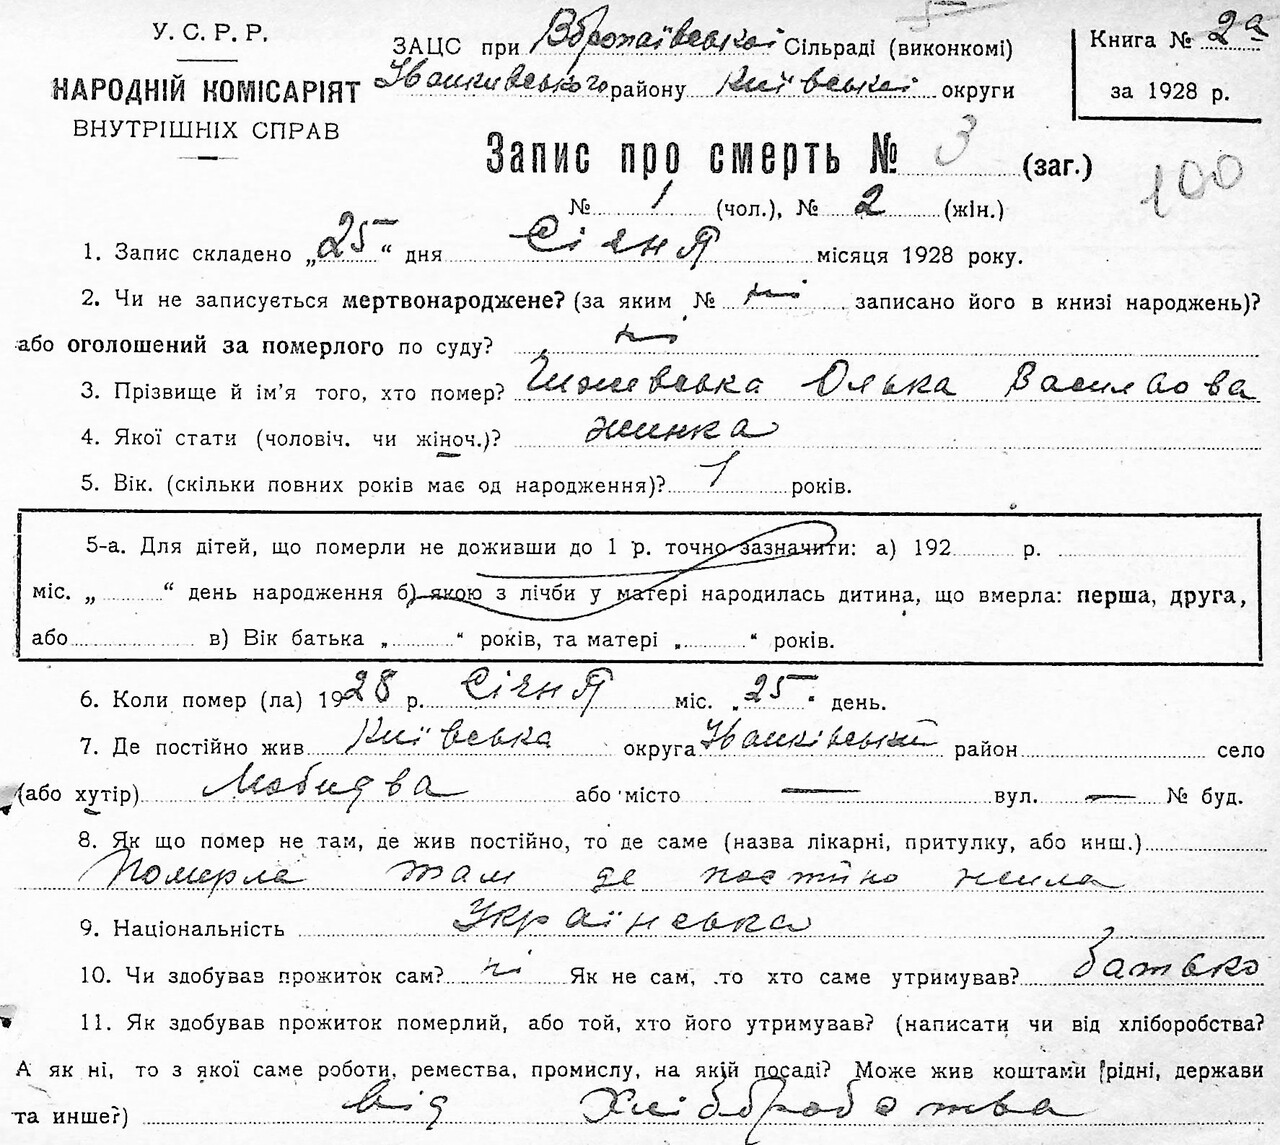 У. С. Р. Р.
НАРОДНІЙ КОМІСАРІЯТ
ВНУТРІШНІХ СПРАВ
ЗАЦС при Сільраді (виконкомі)
Іванкивського району Київської округи
Книга № 2а
за 1928 р.
Запис про смерть № 3 (заг.)
100
№ 1 (чол.), № 2 (жін.)
1. Запис складено „25" дня Січня місяця 1928 року.
2. Чи не записується мертвонароджене? (за яким № ні записано його в книзі народжень)?
або оголошений за померлого по суду? ні
3. Прізвище й ім'я того, хто помер? Олька Васильова
4. Якої стати (чоловіч. чи жіноч.)? жинка
5. Вік. (скільки повних років має од народження)? 1 років.
5-а. Для дітей, що померли не доживши до 1 р. точно зазначити: а) 192 р.
міс. „ “ день народження б) якою з лічби у матері народилась дитина, що вмерла: перша, друга,
або в) Вік батька „ “ років, та матері „ “ років.
6. Коли помер (ла) 1928 р. Січня міс. „25“ день.
7. Де постійно жив Київська округа Іванківський район село
(або хутір) або місто — вул. — № буд.
8. Як що помер не там, де жив постійно, то де саме (назва лікарні, притулку, або инш.)
Померла там де постійно жила
9. Національність Українська
10. Чи здобував прожиток сам? ні Як не сам, то хто саме утримував? батько
11. Як здобував прожиток померлий, або той, хто його утримував? (написати чи від хліборобства?
А як ні, то з якої саме роботи, ремества, промислу, на якій посаді? Може жив коштами рідні, держави
та инше?) від Хліборобства